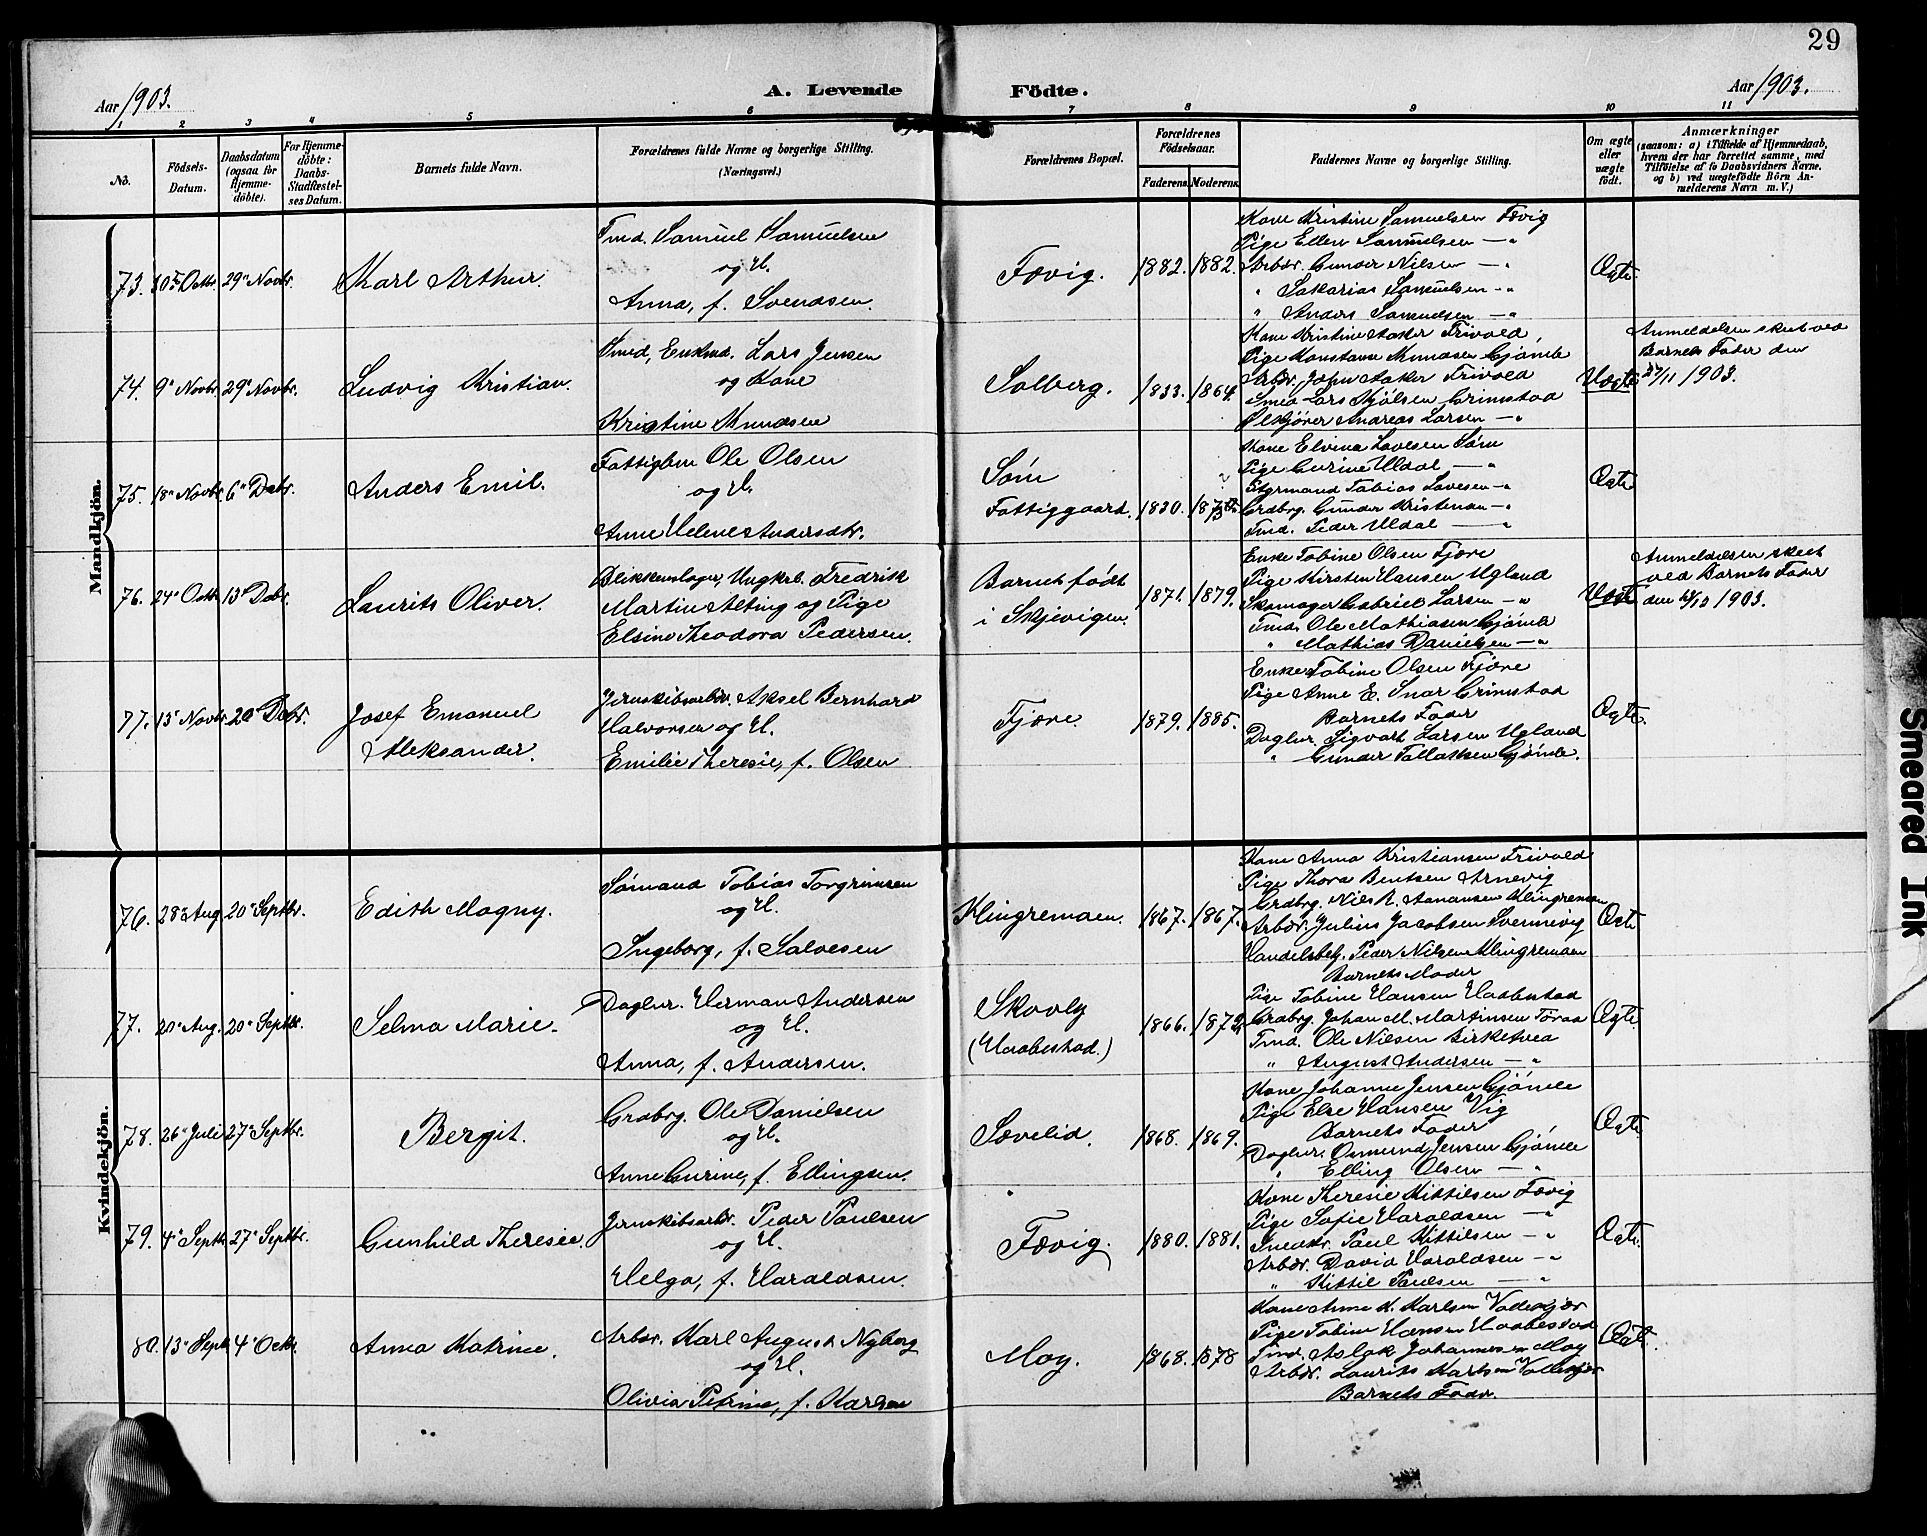 29
Aar 1903.
A. Levende
Födte.
Aar 1903.
1 2 3 4 5 6 7 8 9 10 11
No.
Födsels-Datum.
Daabsdatum (ogsaa for Hjemme-döbte).
For Hjemme-döbte: Daabs-Stadfæstel-ses Datum.
Barnets fulde Navn.
Forældrenes fulde Navne og borgerlige Stilling. (Næringsvei.)
Forældrenes Bopæl.
Forældrenes Födselsaar.
Faderens. Moderens.
Faddernes Navne og borgerlige Stilling.
Om ægte eller uægte födt.
Anmærkninger
(saasom: a) i Tilfælde af Hjemmedaab, hvem der har forrettet samme, med Tilföielse af to Daabsvidners Navne, og b) ved uægtefödte Börn An-melderens Navn m. V.)
Mandkjön.
73. 29 Novbr. Karl Arthur.
Tmd. Samuel Samuelsen
og H.
Anna, f. Svendsen.
Fævig. 1882. 1882.
Kone Kristine Samuelsen Fævig
Pige Ellen Samuelsen — "
Arbdr. Gunder Nilsen — "
" Sakarias Samuelsen — "
" Anders Samuelsen — "
Ægte
74. 9 Novbr. 29 Novbr. Ludvig Kristian.
Smed, Enkmd. Lars Jensen
og Kone
Kristine Knudsen
Solberg. 1833. 1864.
Kone Kristine Aaker Frivold,
Pige Konstanse Knudsen Gjömle
Arbdr. Johan Aaker Frivold
Smed Lars Kjölsen Grimstad
Andreas Larsen — "
Uægte
Anmeldelsen skeet ved
Barnets Fader den
27/11 1903.
75. 18 Novbr. 6 Debr. Anders Emil.
Fattiglem Ole Olsen
og H.
Anne Helene Andersdtr.
Söm
Fattiggaard. 1830.
Kone Elvina Lovesen Söm
Pige Gurine Uldal — "
Styrmand Tobias Lovesen — "
Grdbrg. Gunder Kristensen — "
Tmd. Peder Uldal — "
Ægte
76. 24 Octbr. 13 Debr. Laurits Oliver.
Blikkenslager, Ungkrl. Fredrik
Martinius Alting og Pige
Elsine Theodora Pedersen.
Barnet födt
i Skjevigen. 1871. 1879.
Enke Tobine Olsen Fjære
Pige Kirsten Hansen Ugland
Skomager Gabriel Larsen — "
Tmd. Ole Mathiasen Gjömle
" Mathias Danielsen — "
Uægte
Anmeldelsen skeet
ved Barnets Fader
1903.
77. 15 Novbr. 20 Debr. Josef Emanuel
Aleksander.
Jernskibsarbdr. Aksel Bernhard
Halvorsen og H.
Emilie Theresie, f. Olsen
Fjære 1879. 1885.
Enke Tobine Olsen Fjære
Pige Anne E. Grimstad
Barnets Fader
Daglnr. Sigvart Larsen Ugland
" Gunder Tallaksen Gjömle.
Ægte
Kvindekjön.
76. 28 Aug. 20 Septbr. Edith Magny.
Sömand Tobias Torgrimsen
og H.
Ingeborg, f. Salvesen
Klingremoen. 1867. 1867.
Kone Anna Kristiansen Frivold
Pige Thora Bentsen Arnevig
Grdbrg. Niels R. Aanansen Klingremoen
Arbdr. Julius Jacobsen Svennevig
Handelsbetj. Peder Nilsen Klingremoen
Ægte
77. 20 Aug. 20 Septbr. Selma Marie.
Daglnr. Herman Andersen
og H.
Anna, f. Andersen.
Skovly
(Haabestad.) 1866. 1872.
Barnets Moder
Pige Tobine Hansen Haabestad
Grdbrg. Johan M. Martinsen
Tmd. Ole Nielsen Birketved
" August Andersen — "
Ægte
78. 26 Juli 27 Septbr. Bergit.
Grdbrg. Ole Danielsen
og H.
Anne Gurine, f. Ellingsen.
Sævelid. 1868. 1869.
Kone Johanne Jensen Gjömle
Pige Else Hansen Vig
Barnets Fader
Daglnr. Osmund Jensen Gjömle
" Elling Olsen — "
Ægte
79. 4 Septbr. 27 Septbr. Gunhild Theresie.
Jernskibsarbdr. Peder Paulsen
og H.
Helga, f. Haraldsen.
Fævig. 1880. 1881.
Kone Theresie Kittilsen Fævig
Pige Sofie Haraldsen — "
Paul Kittilsen — "
Arbdr. David Haraldsen — "
" Kittil Paulsen — "
Ægte
80. 13 Septbr. 4 Octbr. Anna Katrine.
Arbdr. Karl August Nyberg
og H.
Olivia Petrine, f. Karlsen
Moy. 1868. 1878
Kone Anne K. Karlsen
Pige Tobine Hansen Haabestad
Tmd. Aslak Johannesen Moy
Arbdr. Laurits Karlsen
Barnets Fader.
Ægte
Smeared Ink